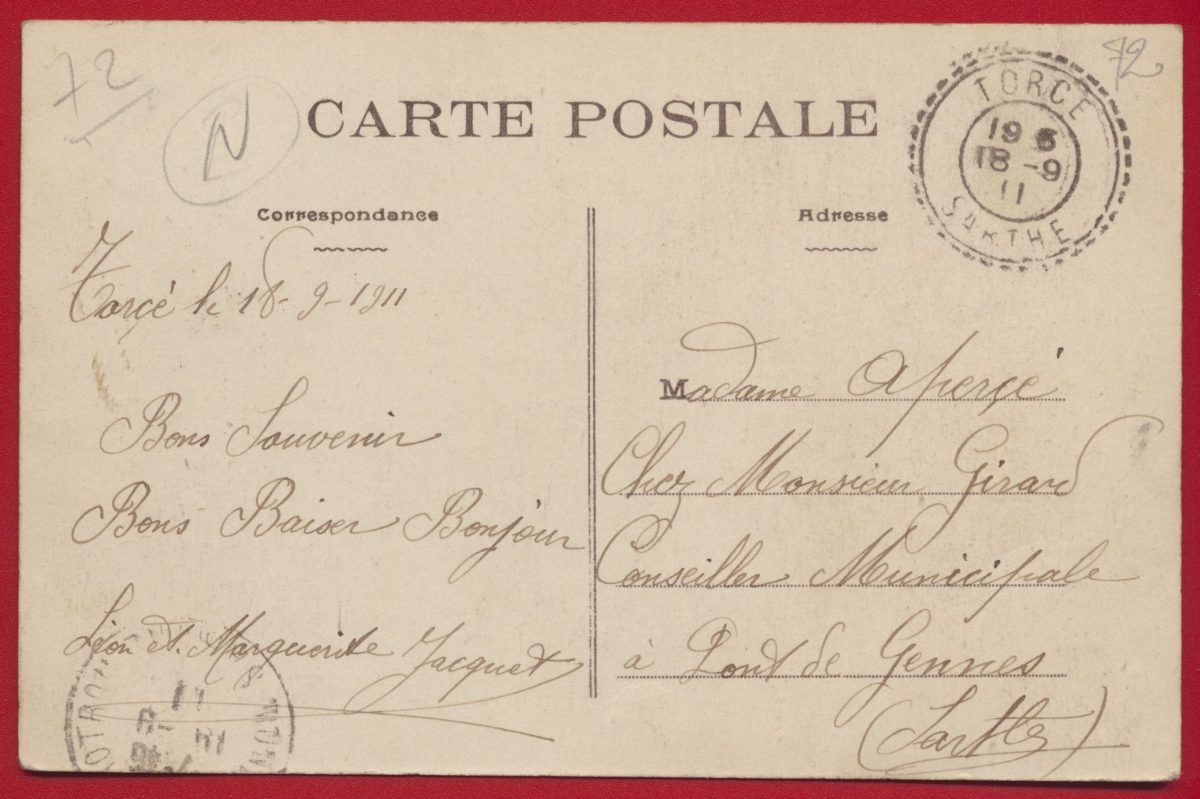 72
N
72
CARTE POSTALE
TORCÉ
19 5
18 - 9
11
SARTHE
Correspondance
Adresse
Torcé le 18-9-1911
Bons Souvenir
Bons Baiser Bonjour
Léon et Marguerite Jacquet
Madame
Chez Monsieur Girard
Conseiller Municipale
à Pont de Gennes
(Sarthe)